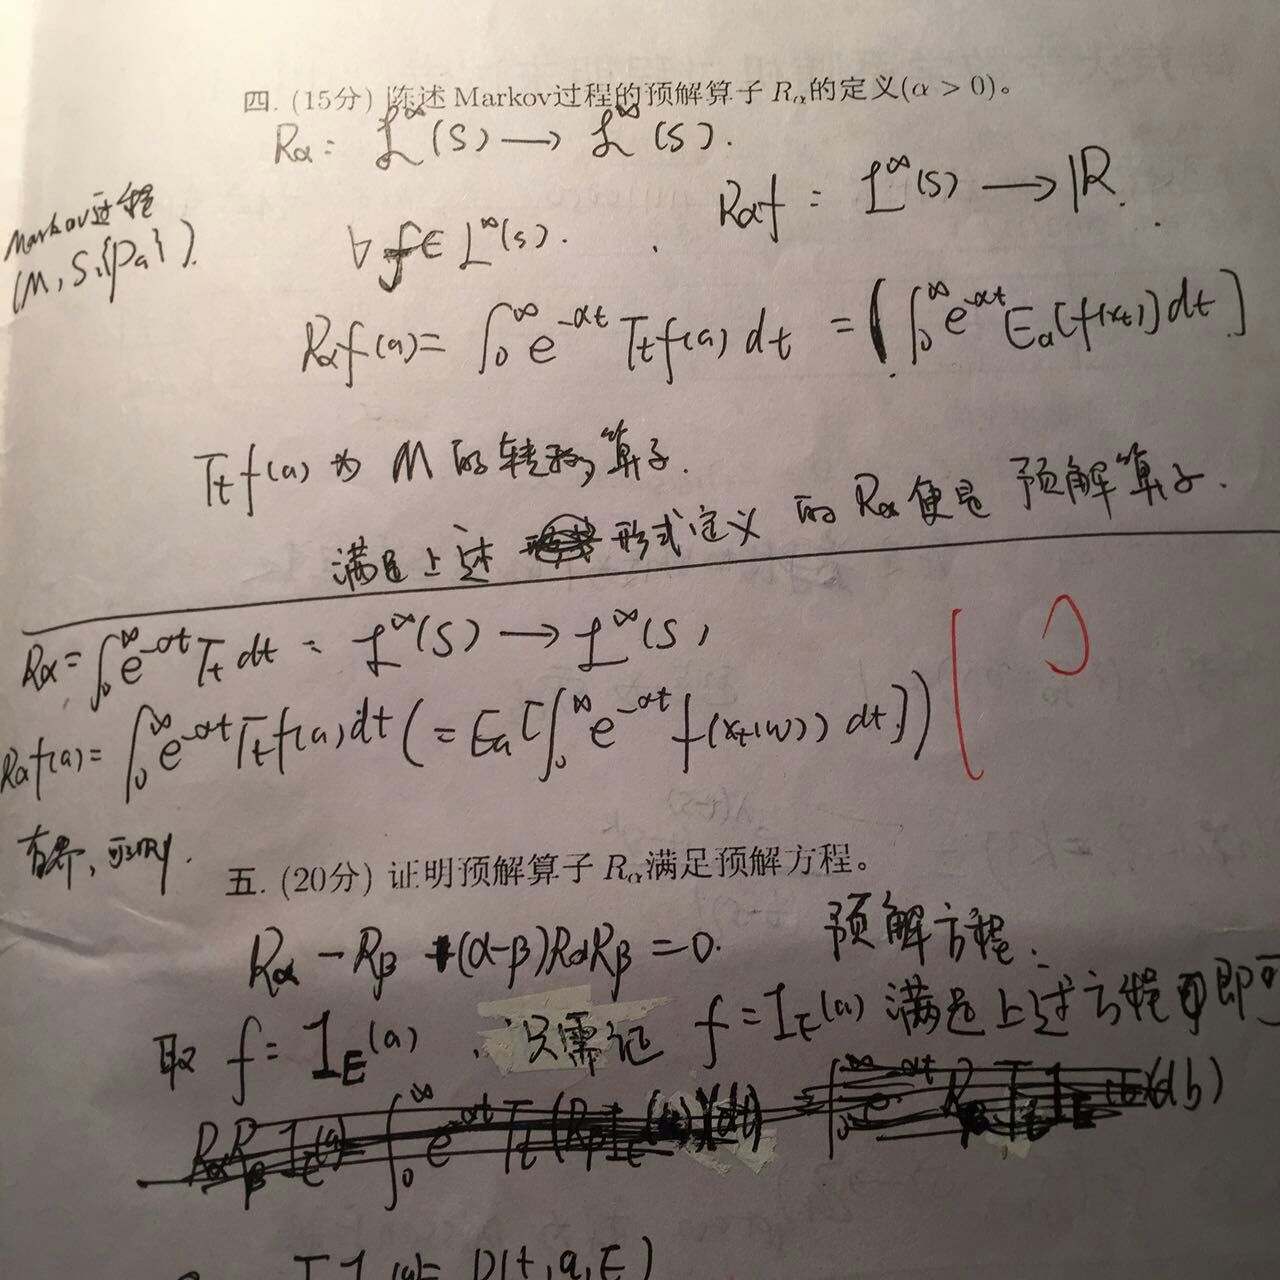 四. (15分) 陈述 Markov过程的预解算子 Rα的定义(α > 0)。
Rα: L^∞(S) → L^∞(S).
Markov过程
(M, S, {Pa}).
Rαf : L^∞(S) → ℝ.
∀ f∈ L^∞(S).
Rαf(a)= ∫₀^∞ e^{-αt} Tt f(a) dt = [∫₀^∞ e^{-αt} Ea[f(xt)] dt]
Tt f(a) 为 M 的转移算子.
满足上述 形式定义 的 Rα 便是 预解算子.
Rα = ∫₀^∞ e^{-αt} Tt dt : L^∞(S) → L^∞(S)
Rαf(a) = ∫₀^∞ e^{-αt} Tt f(a) dt (= Ea[∫₀^∞ e^{-αt} f(xt(w)) dt])
有界, 可测f.
五. (20分) 证明预解算子 Rα满足预解方程。
Rα - Rβ +(α-β)RαRβ = 0. 预解方程.
取 f = 1_E(a). 只需证 f = 1_E(a) 满足上述方程即可
T 1 (a)= P(t, a, E)